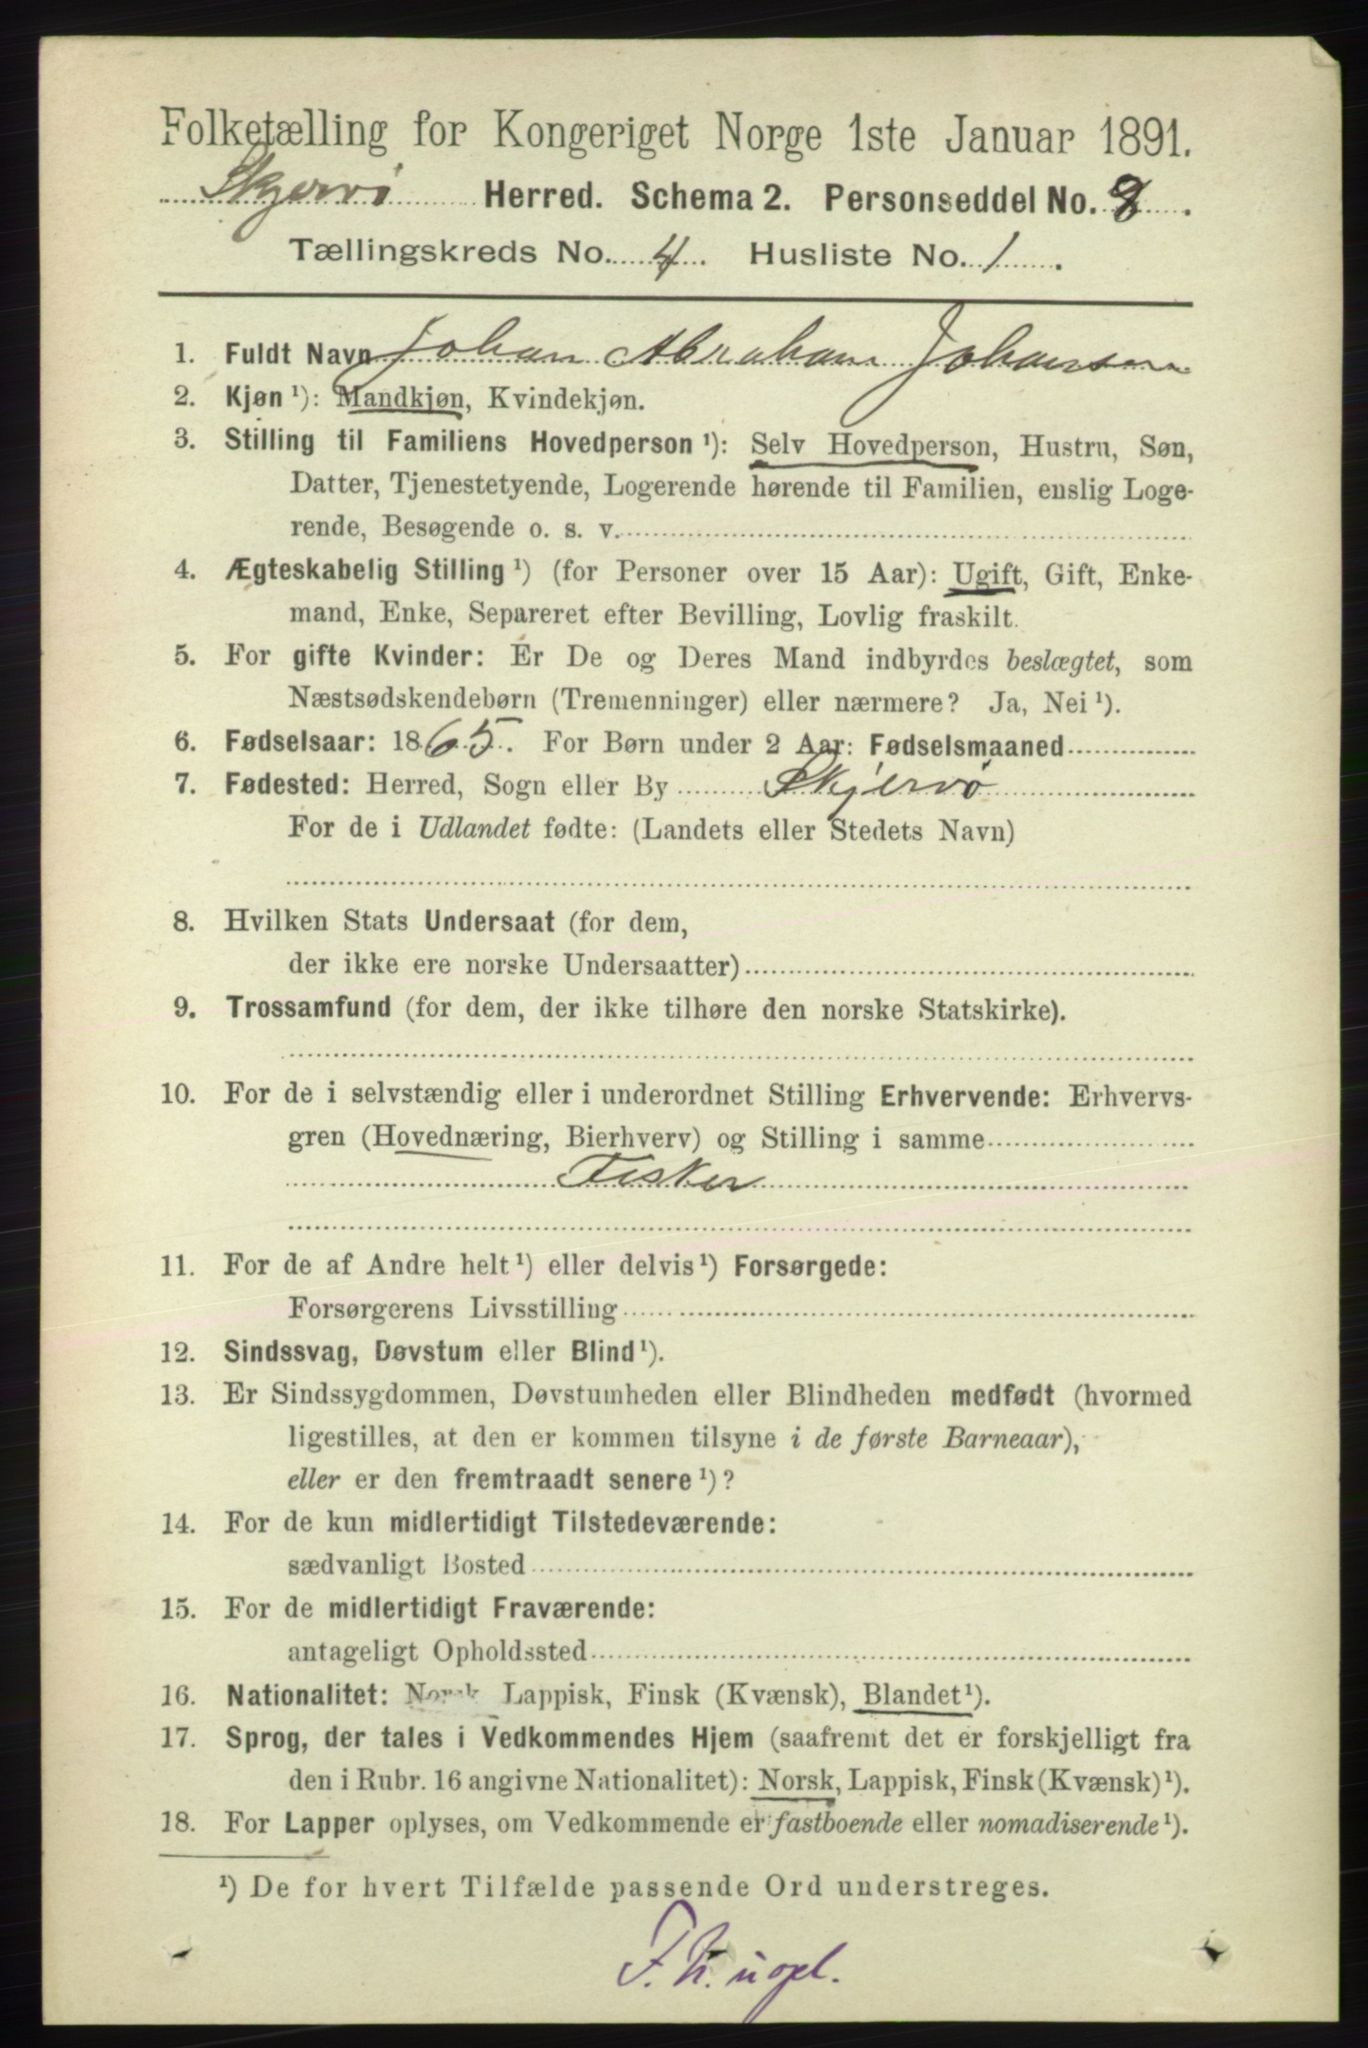 Folketælling for Kongeriget Norge 1ste Januar 1891.
Skjervö Herred. Schema 2. Personseddel No. 8.
Tællingskreds No. 4. Husliste No. 1.
1. Fuldt Navn Johan Abraham Johansen
2. Kjøn ¹): Mandkjøn, Kvindekjøn.
3. Stilling til Familiens Hovedperson ¹): Selv Hovedperson, Hustru, Søn,
Datter, Tjenestetyende, Logerende hørende til Familien, enslig Loge-
rende, Besøgende o. s. v.
4. Ægteskabelig Stilling ¹) (for Personer over 15 Aar): Ugift, Gift, Enke-
mand, Enke, Separeret efter Bevilling, Lovlig fraskilt.
5. For gifte Kvinder: Er De og Deres Mand indbyrdes beslægtet, som
Næstsødskendebørn (Tremenninger) eller nærmere? Ja, Nei ¹).
6. Fødselsaar: 1865. For Børn under 2 Aar: Fødselsmaaned
7. Fødested: Herred, Sogn eller By Skjervö
For de i Udlandet fødte: (Landets eller Stedets Navn)
8. Hvilken Stats Undersaat (for dem,
der ikke ere norske Undersaatter)
9. Trossamfund (for dem, der ikke tilhøre den norske Statskirke).
10. For de i selvstændig eller i underordnet Stilling Erhvervende: Erhvervs-
gren (Hovednæring, Bierhverv) og Stilling i samme
Fisker
11. For de af Andre helt ¹) eller delvis ¹) Forsørgede:
Forsørgerens Livsstilling
12. Sindssvag, Døvstum eller Blind ¹).
13. Er Sindssygdommen, Døvstumheden eller Blindheden medfødt (hvormed
ligestilles, at den er kommen tilsyne i de første Barneaar),
eller er den fremtraadt senere ¹)?
14. For de kun midlertidigt Tilstedeværende:
sædvanligt Bosted
15. For de midlertidigt Fraværende:
antageligt Opholdssted
16. Nationalitet: Norsk Lappisk, Finsk (Kvænsk), Blandet ¹).
17. Sprog, der tales i Vedkommendes Hjem (saafremt det er forskjelligt fra
den i Rubr. 16 angivne Nationalitet): Norsk, Lappisk, Finsk (Kvænsk) ¹).
18. For Lapper oplyses, om Vedkommende er fastboende eller nomadiserende ¹).
¹) De for hvert Tilfælde passende Ord understreges.